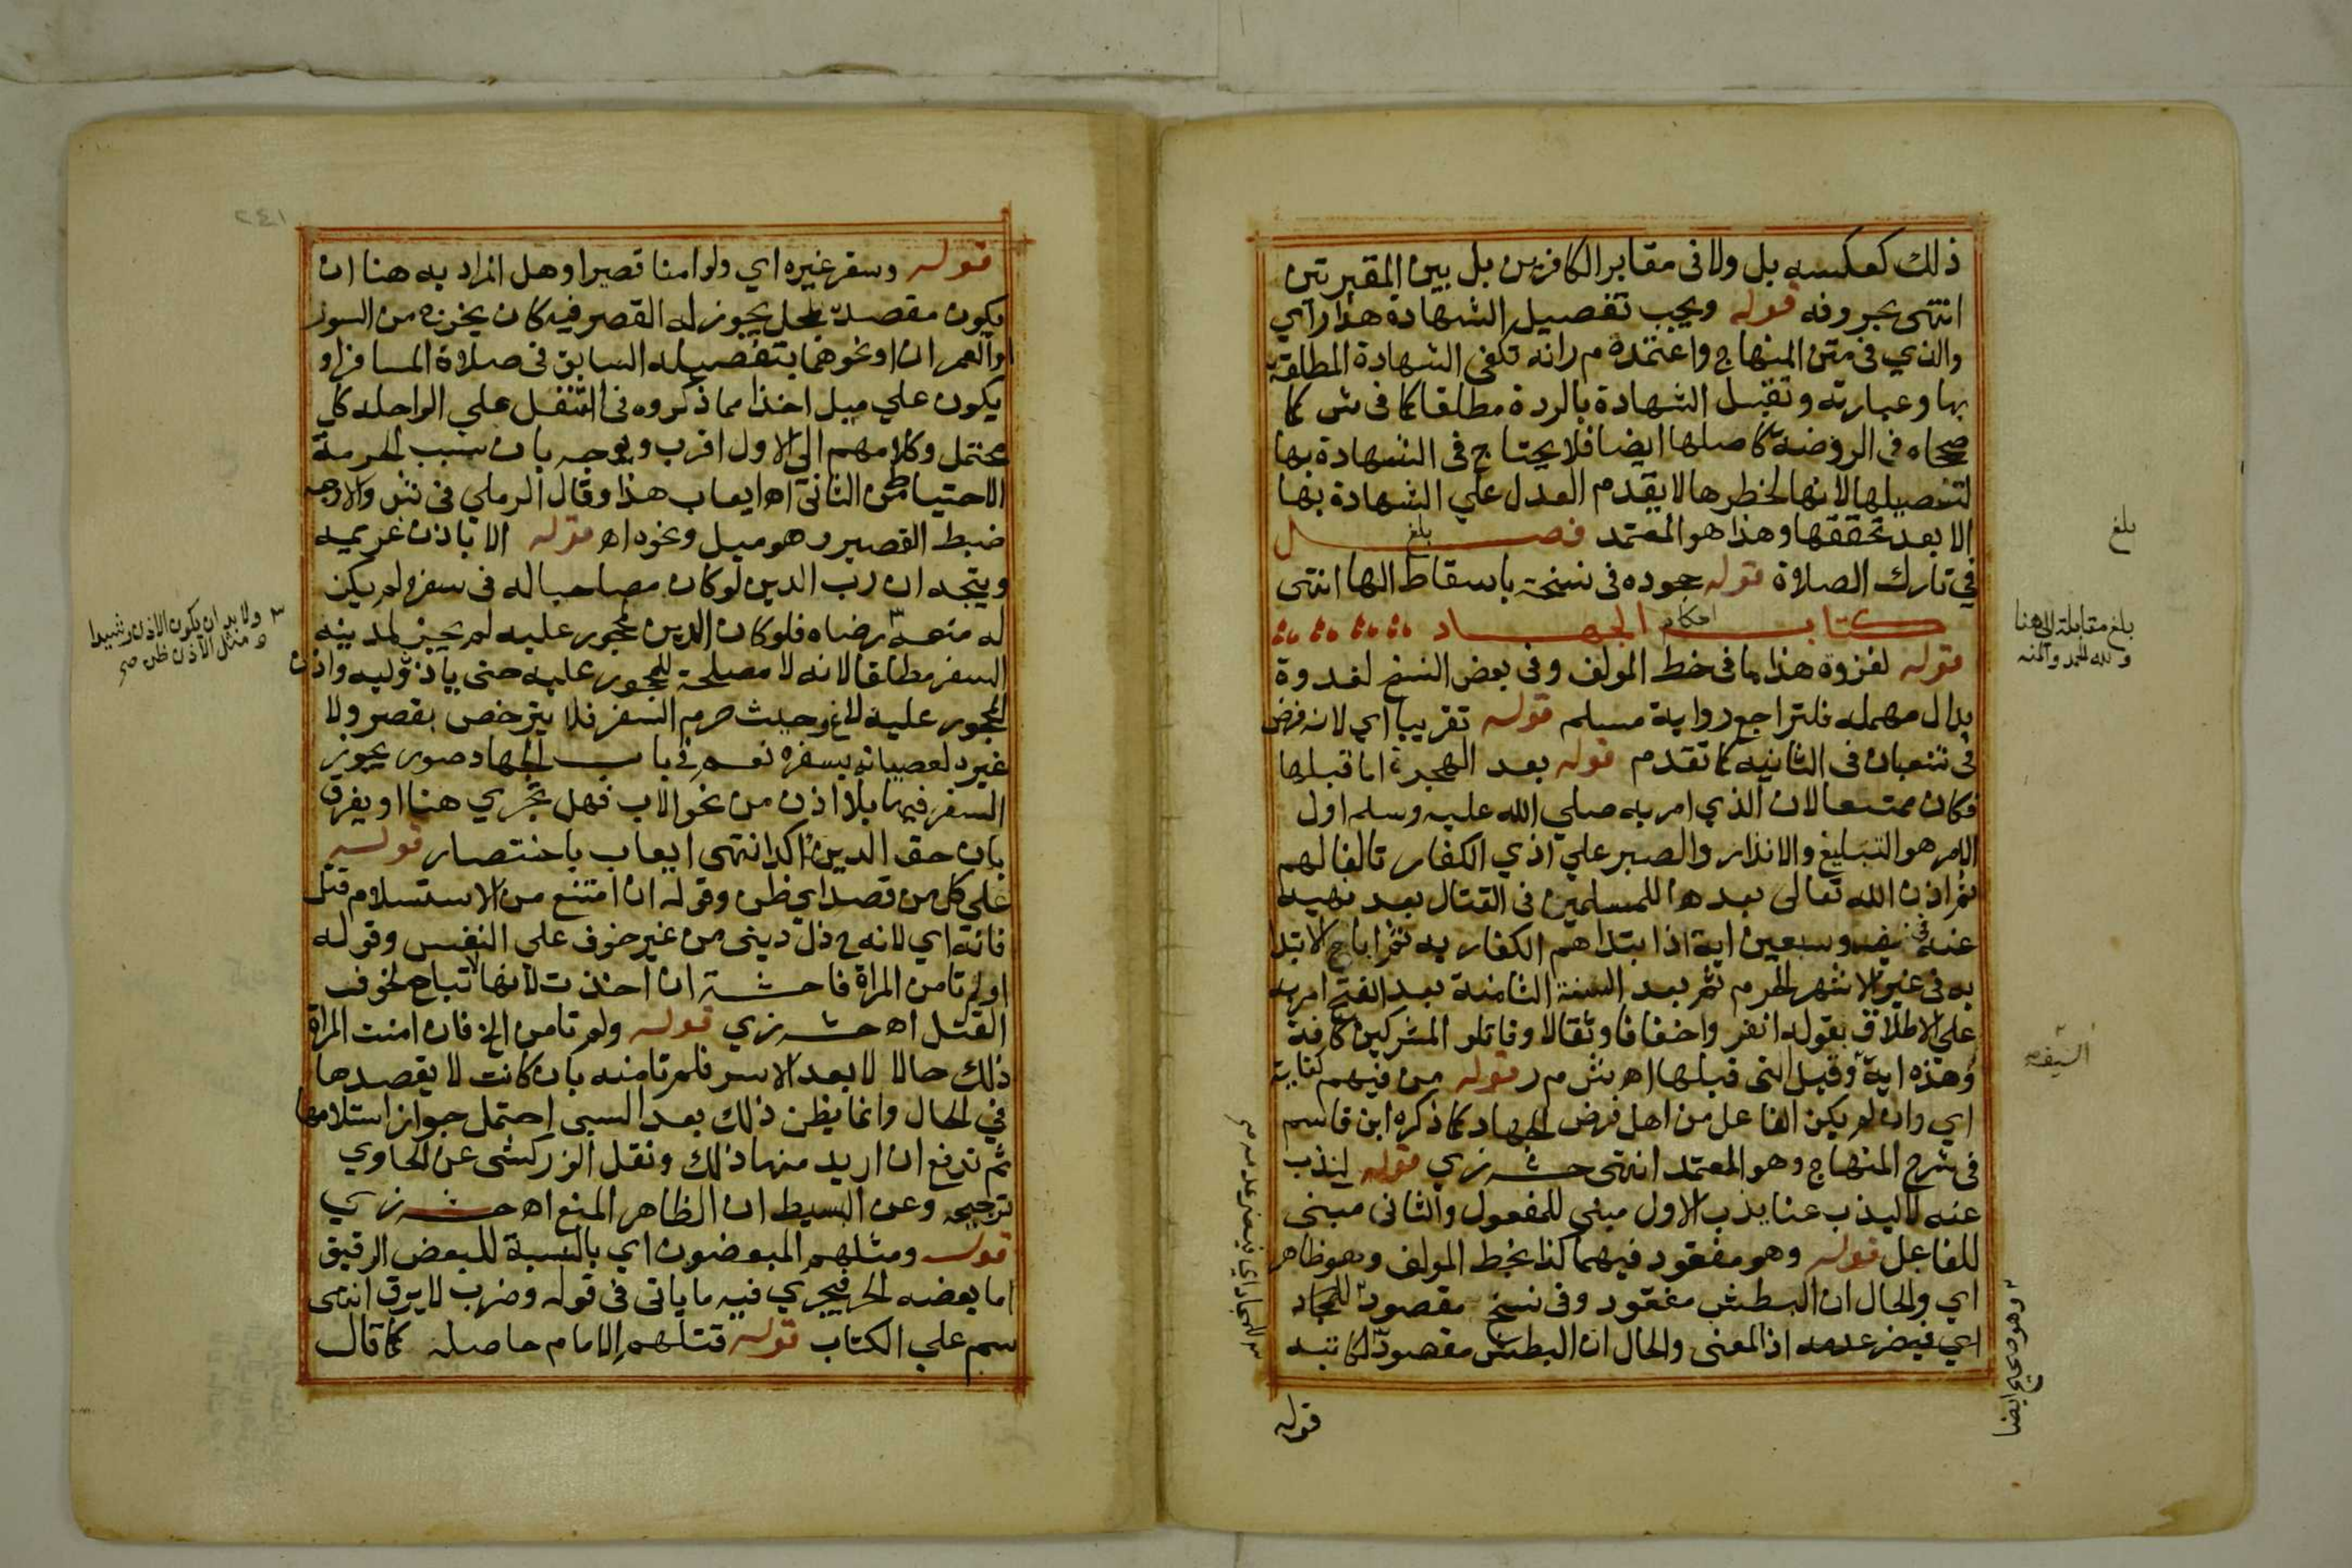 ذلك كعكسه بل ولا فى مقابر الكافرين بل بين المقبرتين
انتهى بحروفه قوله ويجب تفصيل الشهادة هذا رأي
والذي في متن المنهاج واعتمده م ر انه تكفى الشهادة المطلقة
بها وعبارته وتقبل الشهادة بالردة مطلقا كما فى ش كما
صححاه فى الروضة كاصلها ايضا فلا يحتاج فى الشهادة بها
لتفصيلها لانها لخطرها لا يقدم العدل علي الشهادة بها
الا بعد تحققها وهذا هو المعتمد فصل
بلغ
في تارك الصلاة قوله جحوده فى نسخة باسقاط الها انتهى
كتاب احكام الجهاد
قوله لغزوة هذا ما فى خط المولف وفى بعض النسخ لغدوة
بدال مهمله فلتراجع رواية مسلم قوله تقريبا اي لانه فرض
فى شعبان فى الثانيه كما تقدم قوله بعد الهجرة اما قبلها
فكان ممتنعا لان الذي امر به صلي الله عليه وسلم اول
الامر هو التبليغ والانذار والصبر علي اذي الكفار تالفا لهم
ثم اذن الله تعالى بعدها للمسلمين فى القتال بعد نهيه
عنه فى نيف وسبعين اية اذا ابتداهم الكفار به ثم اباح الابتدا
به فى غير الاشهر الحرم ثم بعد السنة الثامنة بعد الفتح امر به
علي الاطلاق بقوله انفروا خفافا وثقالا وقاتلوا المشركين كافة
وهذه اية وقيل التى قبلها اه بش م ر قوله من فيهم كفاية
اي وان لم يكن الفاعل من اهل فرض الجهاد كما ذكره ابن قاسم
فى شرح المنهاج وهو المعتمد انتهى حش زي قوله ليذب
عنه لا ليذب عنا يذب الاول مبنى للمفعول والثانى مبنى
للفاعل قوله وهو مفقود فيهما كذا بخط المولف وهو ظاهر
اي والحال ان البطش مفقود وفى نسخ مقصود للجهاد
اي فيضر عدمه اذ المعنى والحال ان البطش مقصود
قوله
بلغ
بلغ مقابلة الى هنا
ولله الحمد والمنه
السيف
وهو صحيح ايضا
قوله وسفر غيره اي ولو امنا قصيرا وهل المراد به هنا ان
يكون مقصده لمحل يجوز له القصر فيه كان يخرج من السور
او العمران او نحوهما بتفصيله السابق فى صلاة المسافر او
يكون علي ميل اخذا مما ذكروه فى التنفل علي الراحله كل
محتمل وكلامهم الى الاول اقرب ويوجه بان سبب الحرمة
الاحتياط من الثانى اه ايعاب هذا وقال الرملي فى ش والاوجه
ضبط القصير وهو ميل ونحوه اه قوله الا باذن غريمه
ويتجه ان رب الدين لو كان مصاحبا له فى سفره لم يكن
له منعه رضاه فلو كان الدين لمحجور عليه لم يجز لمدينه
السفر مطلقا لانه لا مصلحة للمحجور عليه حتى ياذن وليه واذن
المحجور عليه لاغ وحيث حرم السفر فلا يترخص بقصر ولا
غيره لعصيانه بسفره نعم فى باب الجهاد صور يجوز
السفر فيها بلا اذن من نحو الاب فهل تجري هنا او يفرق
بان حق الدين اكد انتهى ايعاب باختصار قوله
على كل من قصد اي ظن وقوله ان امتنع من الاستسلام قتل
فانه اي لانه ح ذل دينى من غير خوف علي النفس وقوله
او لم تامن المراة فاحشة ان اخذت لانها لا تباح لخوف
القتل اه حش زي قوله ولم تامن الخ فان امنت المراة
ذلك حالا لا بعد الاسر فلم تامنه بان كانت لا يقصدها
في الحال وانما يظن ذلك بعد السبى احتمل جواز استلامها
ثم تدفع ان اريد منها ذلك ونقل الزركشى عن الحاوي
ترجيحه وعن البسيط ان الظاهر المنع اه حش زي
قوله ومثلهم المبعضون اي بالنسبة للبعض الرقيق
اما بعضه الحر فيجري فيه ما ياتى فى قوله وضرب لا يرق انتهى
سم علي الكتاب قوله قتلهم الامام حاصله كما قال
ولا بد ان يكون الاذن رشيدا
ومثل الاذن ظن